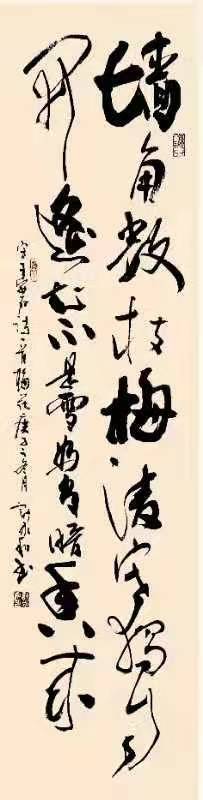 墙角数枝梅凌寒独自
开遥知不是雪为有暗香来
宋王安石诗一首梅花庚子冬月永和书